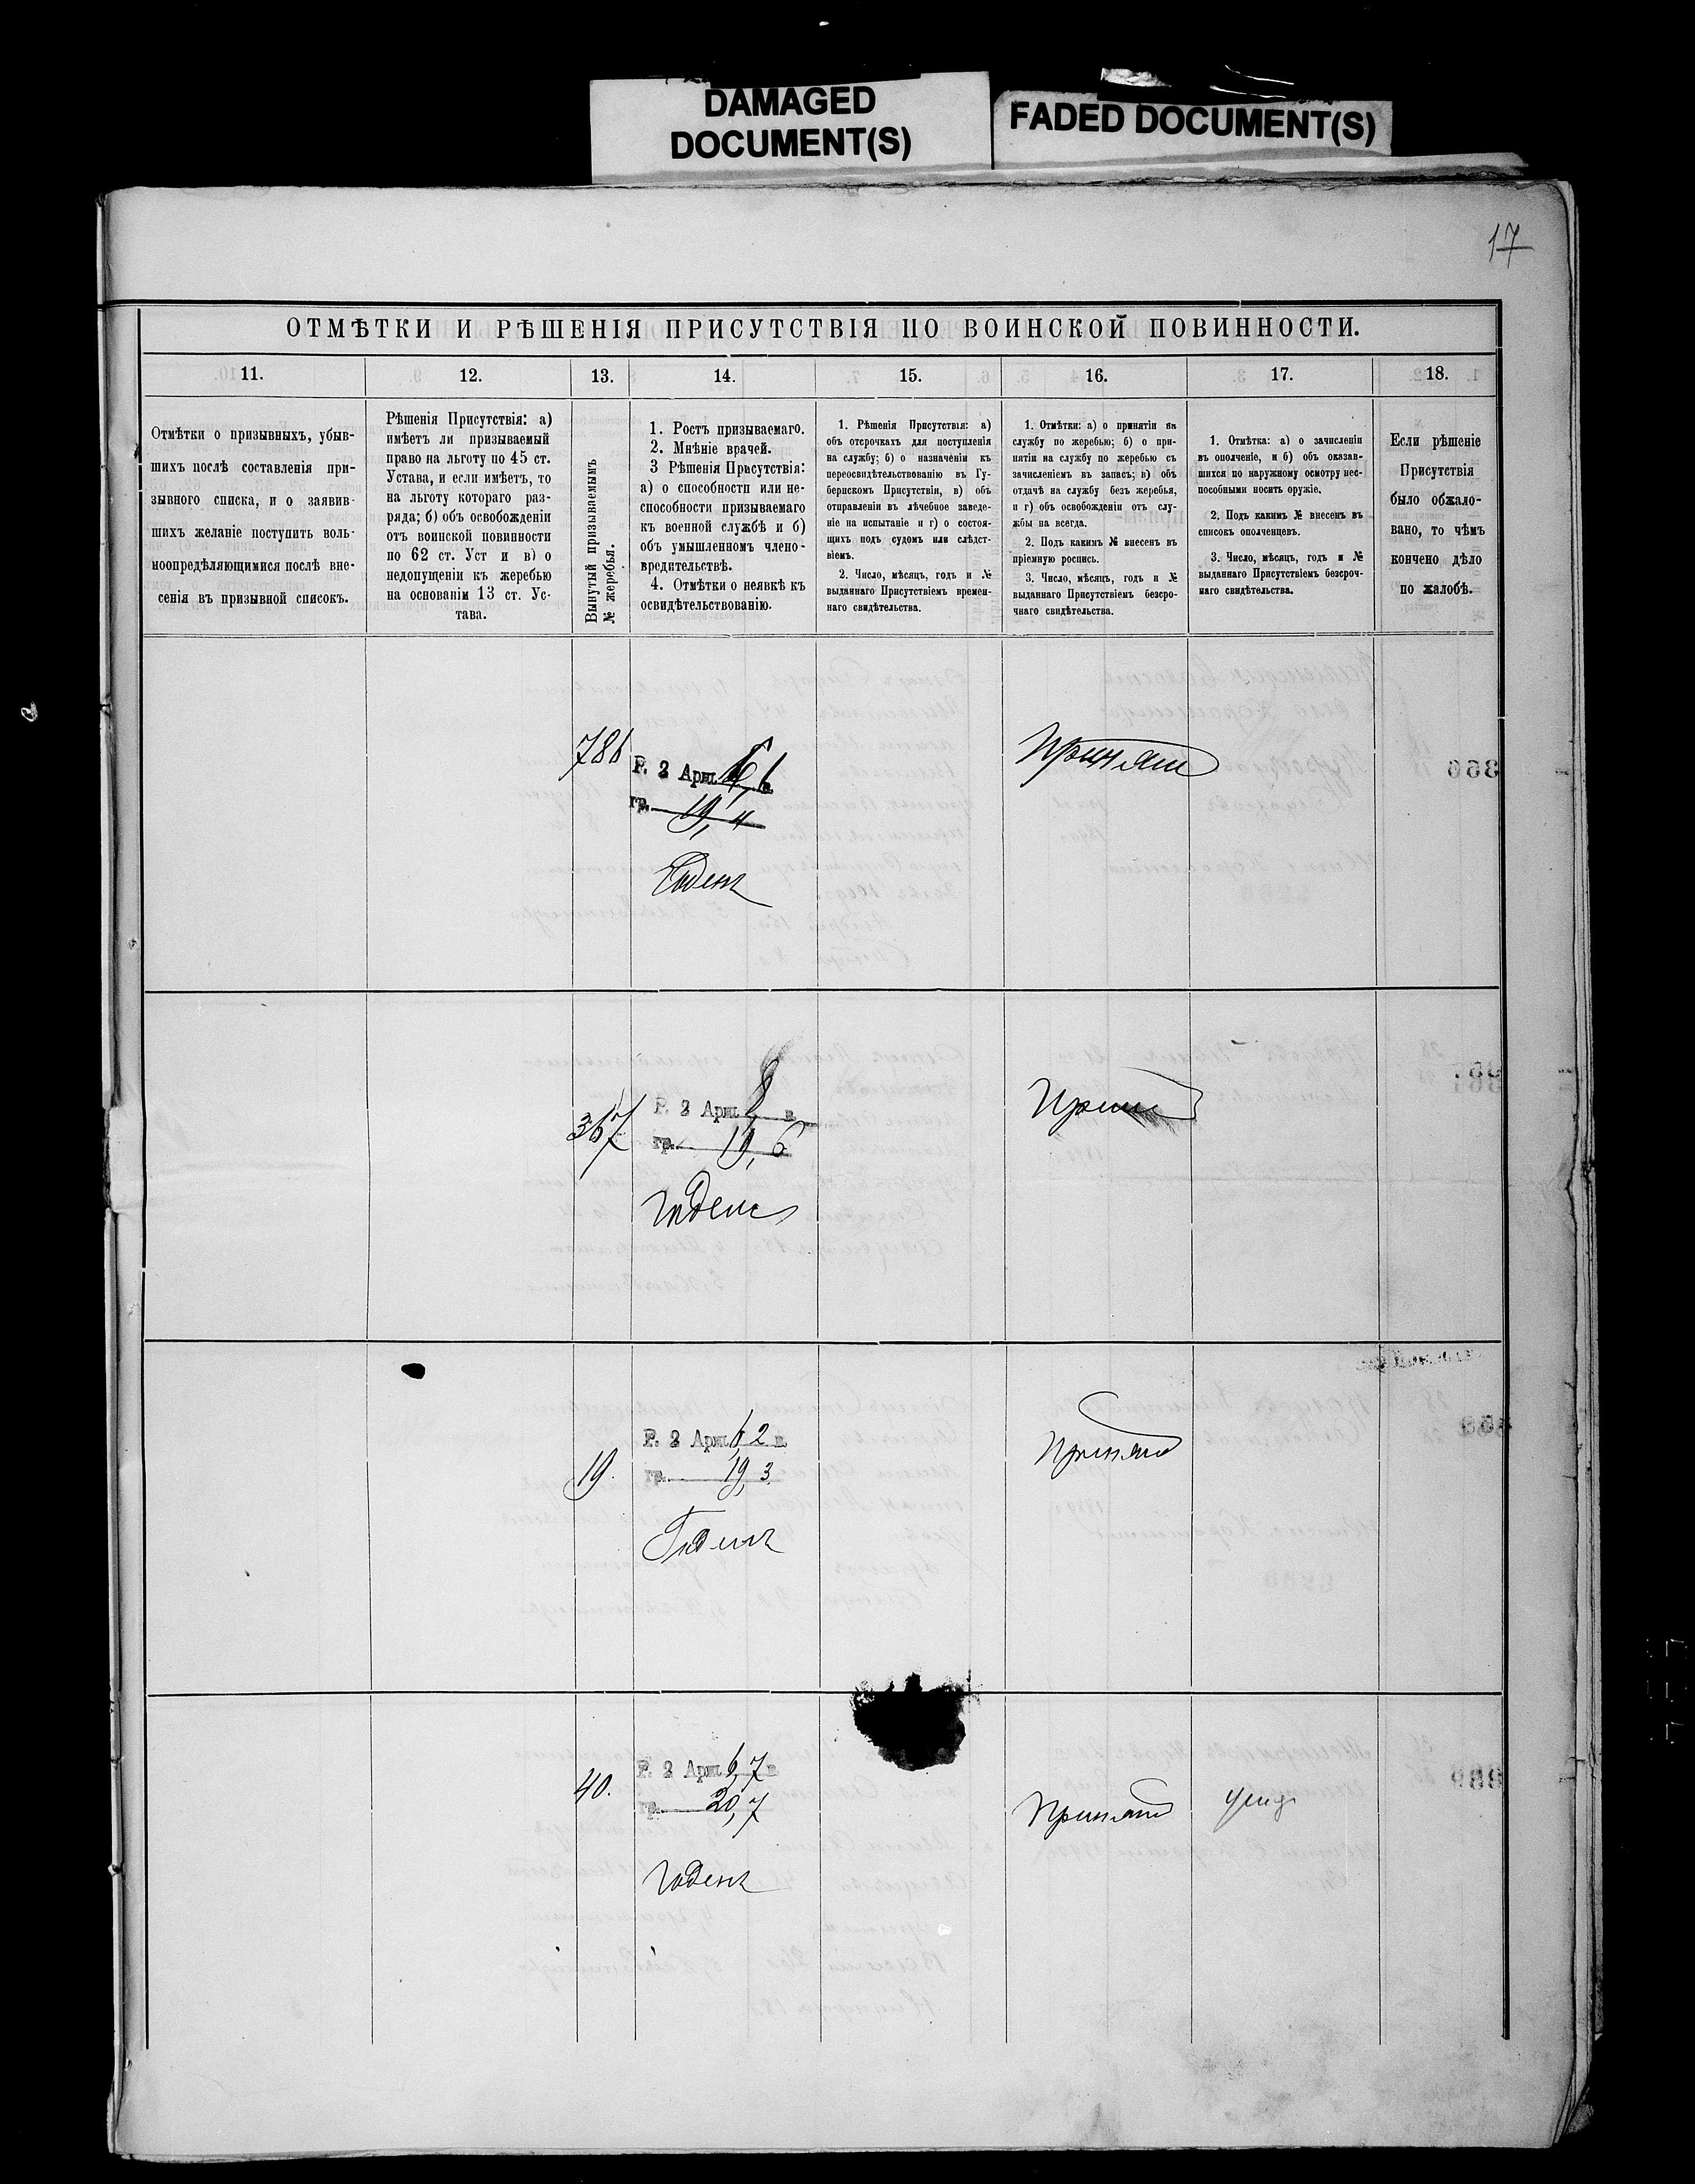 DAMAGED
DOCUMENT(S)
FADED DOCUMENT(S)
17
ОТМѢТКИ И РѢШЕНІЯ ПРИСУТСТВІЯ ПО ВОИНСКОЙ ПОВИННОСТИ.
11.
12.
13.
14.
15.
16.
17.
18.
Отмѣтки о призывныхъ, убыв-
шихъ послѣ составленія при-
зывного списка, и о заявив-
шихъ желаніе поступить воль-
ноопредѣляющимися послѣ вне-
сенія въ призывной списокъ.
Рѣшенія Присутствія: а)
имѣетъ ли призываемый
право на льготу по 45 ст.
Устава, и если имѣетъ, то
на льготу котораго раз-
ряда; б) объ освобожденіи
отъ воинской повинности
по 62 ст. Уст и в) о
недопущеніи къ жеребью
на основаніи 13 ст. Ус-
тава.
Вынутый призываемымъ
№ жеребья.
1. Ростъ призываемаго.
2. Мнѣніе врачей.
3 Рѣшенія Присутствія:
а) о способности или не-
способности призываемаго
къ военной службѣ и б)
объ умышленномъ члено-
вредительствѣ.
4. Отмѣтки о неявкѣ къ
освидѣтельствованію.
1. Рѣшенія Присутствія: а)
объ отсрочкахъ для поступленія
на службу; б) о назначеніи къ
переосвидѣтельствованію въ Гу-
бернскомъ Присутствіи, в) объ
отправленіи въ лѣчебное заведе-
ніе на испытаніе и г) о состоя-
щихъ подъ судомъ или слѣдст-
віемъ.
2. Число, мѣсяцъ, годъ и №
выданнаго Присутствіемъ времен-
наго свидѣтельства.
1. Отмѣтки: а) о принятіи на
службу по жеребью; б) о при-
нятіи на службу по жеребью съ
зачисленіемъ въ запасъ; в) объ
отдачѣ на службу безъ жеребья,
и г) объ освобожденіи отъ слу-
жбы на всегда.
2. Подъ какимъ № внесенъ въ
пріемную роспись.
3. Число, мѣсяцъ, годъ и №
выданнаго Присутствіемъ безсро-
чнаго свидѣтельства.
1. Отмѣтка: а) о зачисленіи
въ ополченіе, и б) объ оказав-
шихся по наружному осмотру нес-
пособными носить оружіе.
2. Подъ какимъ № внесенъ въ
списокъ ополченцевъ.
3. Число, мѣсяцъ, годъ и №
выданнаго Присутствіемъ безсроч-
наго свидѣтельства.
Если рѣшеніе
Присутствія
было обжало-
вано, то чѣмъ
кончено дѣло
по жалобѣ.
786
Р. 2 Арш. в.
гр. 19,4
Годенъ
Принятъ
367
Р. 2 Арш. 8 в.
гр. 19,6
Годенъ
Принятъ
19.
Р. 2 Арш. 6,2 в.
гр. 19,3
Годенъ
Принятъ
40.
Р. 2 Арш. 6,7 в.
гр. 20,7
Годенъ
Принятъ